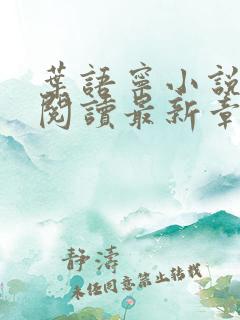 葉語寧小說
閱讀最新章
静濤
未任同意禁止转载